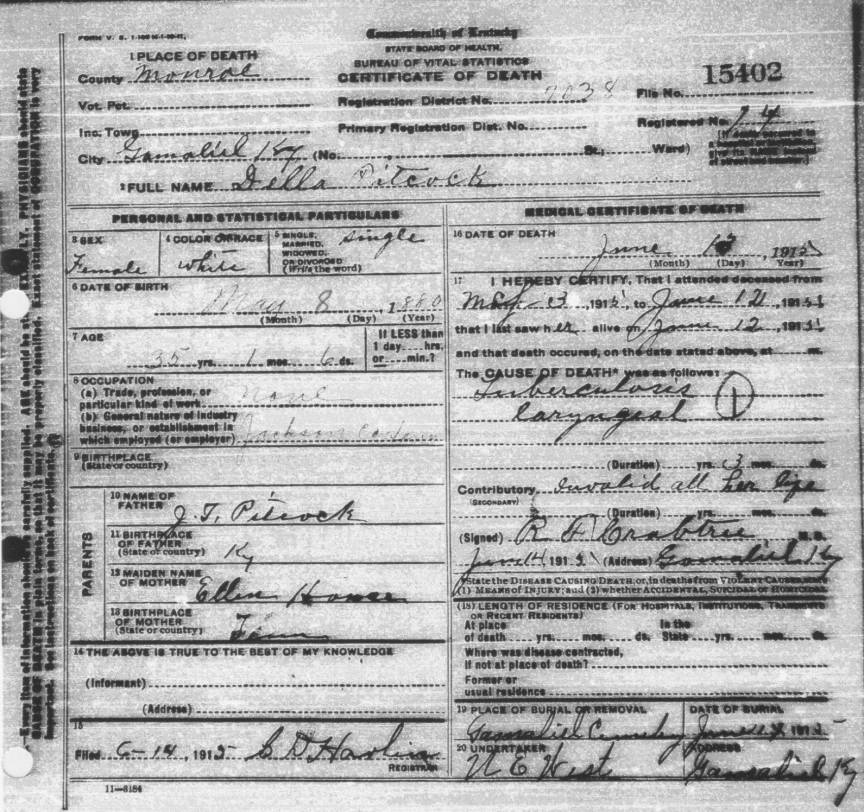 Commonwealth of Kentucky
STATE BOARD OF HEALTH.
BUREAU OF VITAL STATISTICS
CERTIFICATE OF DEATH
1 PLACE OF DEATH
County Monroe
Vot. Pct.
Inc. Town
City Gamaliel Ky (No. St., Ward)
Registration District No. 7038
Primary Registration Dist. No.
File No. 15402
Registered No. 14
2 FULL NAME Della Pitcock
PERSONAL AND STATISTICAL PARTICULARS
3 SEX Female
4 COLOR OR RACE white
5 SINGLE, MARRIED, WIDOWED, OR DIVORCED (Write the word) single
6 DATE OF BIRTH
May 8 1880
(Month) (Day) (Year)
7 AGE
35 yrs. 1 mos. 6 ds.
If LESS than
1 day....hrs.
or....min.?
8 OCCUPATION
(a) Trade, profession, or
particular kind of work none
(b) General nature of industry
business, or establishment in
which employed (or employer)
9 BIRTHPLACE
(State or country)
PARENTS
10 NAME OF
FATHER J. T. Pitcock
11 BIRTHPLACE
OF FATHER
(State or country) Ky
12 MAIDEN NAME
OF MOTHER Ellen
13 BIRTHPLACE
OF MOTHER
(State or country)
14 THE ABOVE IS TRUE TO THE BEST OF MY KNOWLEDGE
(Informant)
(Address)
15
Filed 6-14, 1915
REGISTRAR
11-3184
MEDICAL CERTIFICATE OF DEATH
16 DATE OF DEATH
June 1915
(Month) (Day) (Year)
17 I HEREBY CERTIFY, That I attended deceased from
3, 1915, to June 12, 1915
that I last saw her alive on June 12, 1915
and that death occured, on the date stated above, at m.
The CAUSE OF DEATH* was as follows:
Tuberculosis
laryngeal 1
(Duration) yrs. 3 mos. ds.
Contributory Invalid all her life
(SECONDARY)
(Duration) yrs. mos. ds.
(Signed) R F Crabtree, M.D.
June 14 1915 (Address) Gamaliel Ky
*State the DISEASE CAUSING DEATH, or, in deaths from VIOLENT CAUSES, state
(1) MEANS OF INJURY; and (2) whether ACCIDENTAL, SUICIDAL or HOMICIDAL
(18) LENGTH OF RESIDENCE (FOR HOSPITALS, INSTITUTIONS, TRANSIENTS
OR RECENT RESIDENTS)
At place In the
of death yrs. mos. ds. State yrs. mos. ds.
Where was disease contracted,
if not at place of death?
Former or
usual residence
19 PLACE OF BURIAL OR REMOVAL
Gamaliel Cemetery
DATE OF BURIAL
June 14 1915
20 UNDERTAKER
N E West
ADDRESS
Gamaliel Ky